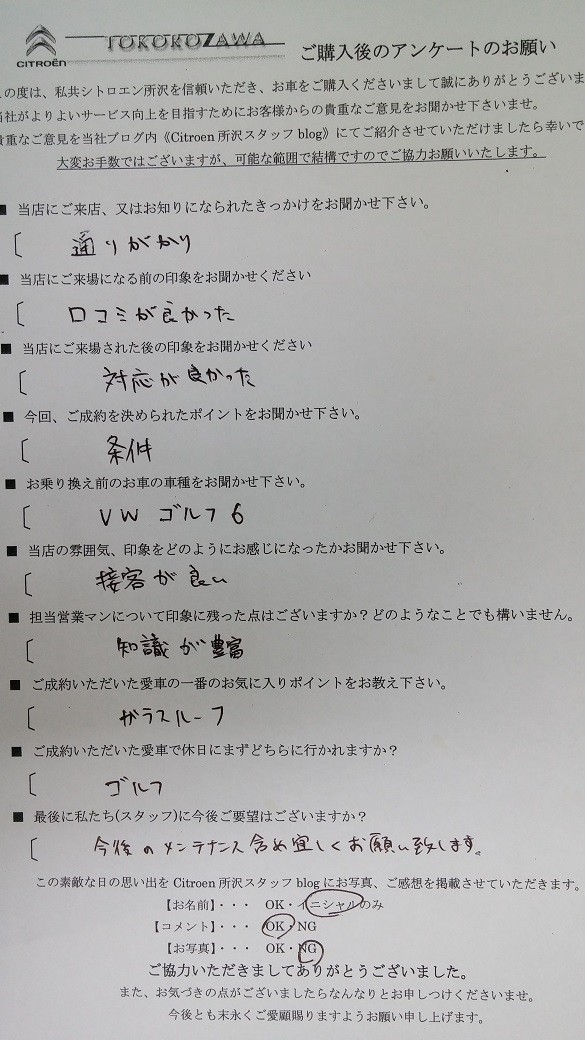 CITROËN
TOKOROZAWA
ご購入後のアンケートのお願い
の度は、私共シトロエン所沢を信頼いただき、お車をご購入くださいまして誠にありがとうございま
当社がよりよいサービス向上を目指すためにお客様からの貴重なご意見をお聞かせ下さいませ。
貴重なご意見を当社ブログ内《Citroen 所沢スタッフ blog》にてご紹介させていただけましたら幸いで
大変お手数ではございますが、可能な範囲で結構ですのでご協力お願いいたします。
■ 当店にご来店、又はお知りになられたきっかけをお聞かせ下さい。
[ 通りがかり
■ 当店にご来場になる前の印象をお聞かせください
[ 口コミが良かった
■ 当店にご来場された後の印象をお聞かせください
[ 対応が良かった
■ 今回、ご成約を決められたポイントをお聞かせ下さい。
[ 条件
■ お乗り換え前のお車の車種をお聞かせ下さい。
[ VW ゴルフ6
■ 当店の雰囲気、印象をどのようにお感じになったかお聞かせ下さい。
[ 接客が良い
■ 担当営業マンについて印象に残った点はございますか？どのようなことでも構いません。
[ 知識が豊富
■ ご成約いただいた愛車の一番のお気に入りポイントをお教え下さい。
[ ガラスルーフ
■ ご成約いただいた愛車で休日にまずどちらに行かれますか？
[ ゴルフ
■ 最後に私たち(スタッフ)に今後ご要望はございますか？
[ 今後のメンテナンス含め宜しくお願い致します。
この素敵な日の思い出を Citroen 所沢スタッフ blog にお写真、ご感想を掲載させていただきます。
【お名前】・・・ OK・イニシャルのみ
【コメント】・・・ OK・NG
【お写真】・・・ OK・NG
ご協力いただきましてありがとうございました。
また、お気づきの点がございましたらなんなりとお申しつけくださいませ。
今後とも末永くご愛顧賜りますようお願い申し上げます。